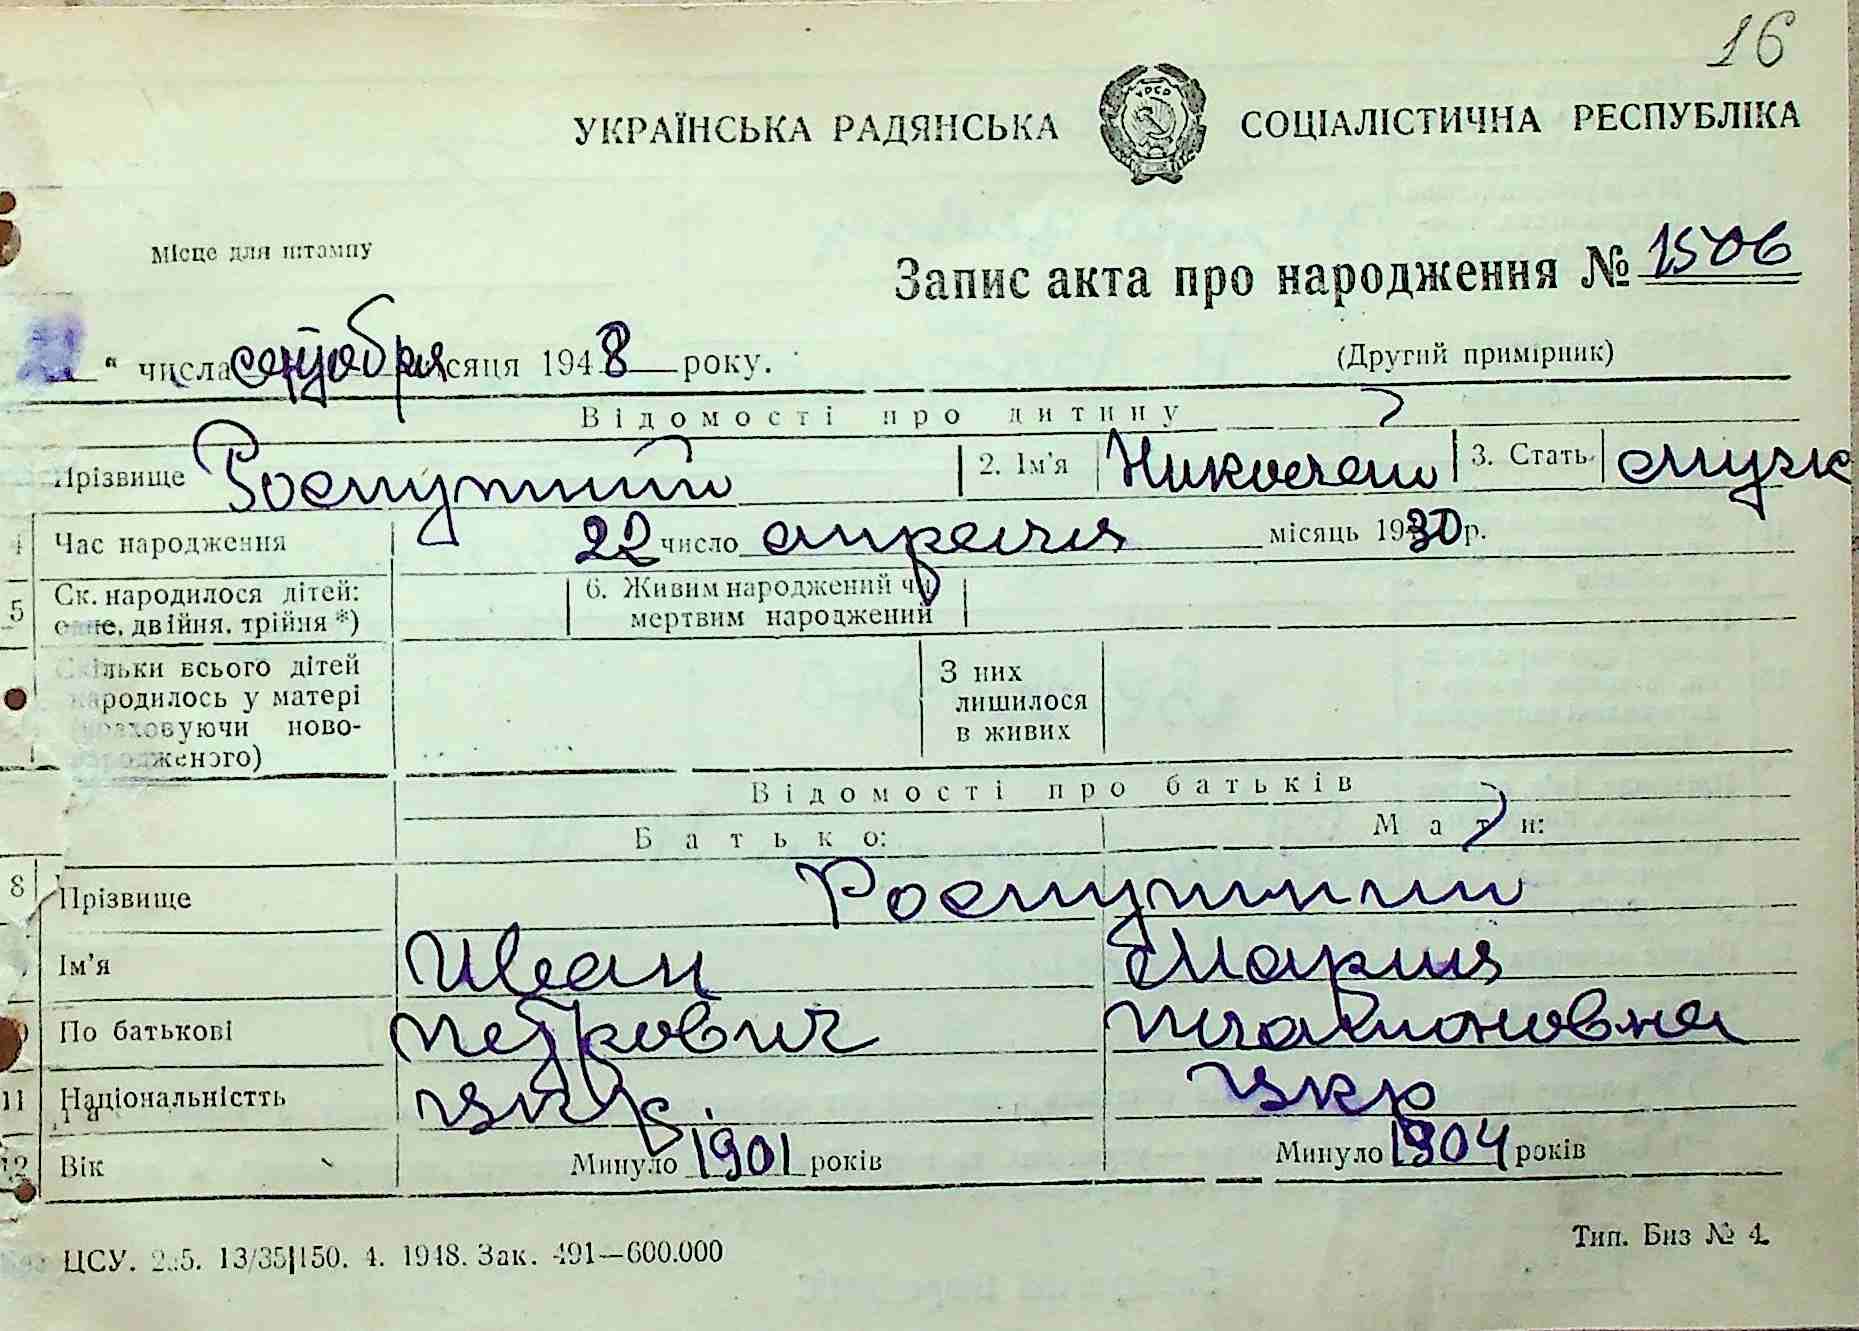 16
УКРАЇНСЬКА РАДЯНСЬКА СОЦІАЛІСТИЧНА РЕСПУБЛІКА
УРСР
Місце для штампу
Запис акта про народження № 1506
" числа сентября місяця 1948 року.
(Другий примірник)
Відомості про дитину
Прізвище 2. Ім'я Николай 3. Стать муж
4 Час народження 22 число апреля місяць 1930 р.
5 Ск. народилося дітей: одне, двійня, трійня *) 6. Живим народжений чи мертвим народжений
Скільки всього дітей народилось у матері (враховуючи новонародженого) З них лишилося в живих
Відомості про батьків
Батько: Мати:
8 Прізвище
Ім'я Иван Мария
По батькові Петрович Платоновна
11 Національністть укр. укр
12 Вік Минуло 1901 років Минуло 1904 років
ЦСУ. 13/35|150. 4. 1948. Зак. 491—600.000
Тип. Биз № 4.